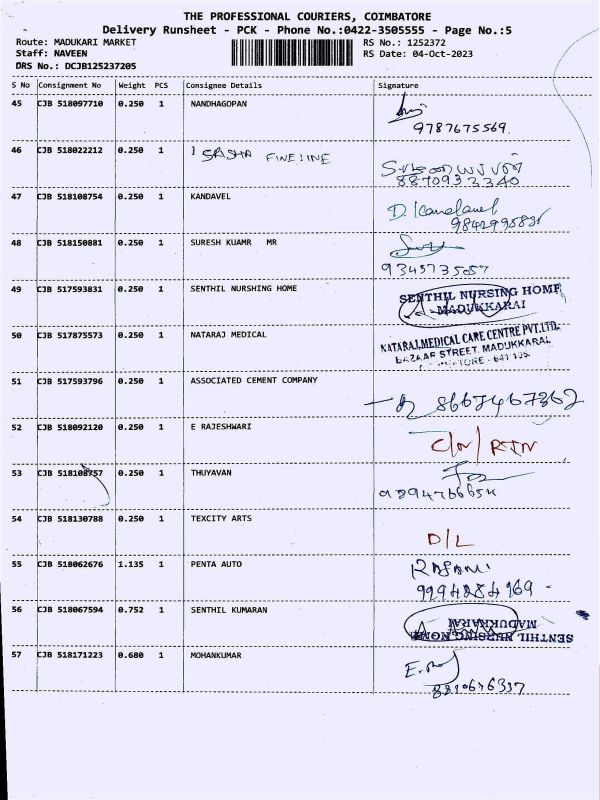 THE PROFESSIONAL COURIERS, COIMBATORE
Delivery Runsheet - PCK - Phone No.:0422-3505555 - Page No.:5
Route: MADUKARI MARKET RS No.: 1252372
Staff: NAVEEN RS Date: 04-Oct-2023
DRS No.: DCJB125237205
S No Consignment No Weight PCS Consignee Details Signature
45 CJB 518097710 0.250 1 NANDHAGOPAN
9787675569.
46 CJB 518022212 0.250 1 SASHA FINELINE
8870933340
47 CJB 518108754 0.250 1 KANDAVEL D. Kandavel
48 CJB 518150881 0.250 1 SURESH KUAMR MR
9345735057
49 CJB 517593831 0.250 1 SENTHIL NURSHING HOME SENTHIL NURSING HOME
MADUKKARAI
50 CJB 517875573 0.250 1 NATARAJ MEDICAL NATARAJ MEDICAL CARE CENTRE PVT.LTD.
BAZAAR STREET, MADUKKARAI,
51 CJB 517593796 0.250 1 ASSOCIATED CEMENT COMPANY
8667467362
52 CJB 518092120 0.250 1 E RAJESHWARI C/N/RTN
53 CJB 518108757 0.250 1 THUYAVAN
54 CJB 518130788 0.250 1 TEXCITY ARTS
D/L
55 CJB 518062676 1.135 1 PENTA AUTO RAJANI
9994284169
56 CJB 518067594 0.752 1 SENTHIL KUMARAN MADUKKARAI
SENTHIL NURSING HOME
57 CJB 518171223 0.680 1 MOHANKUMAR